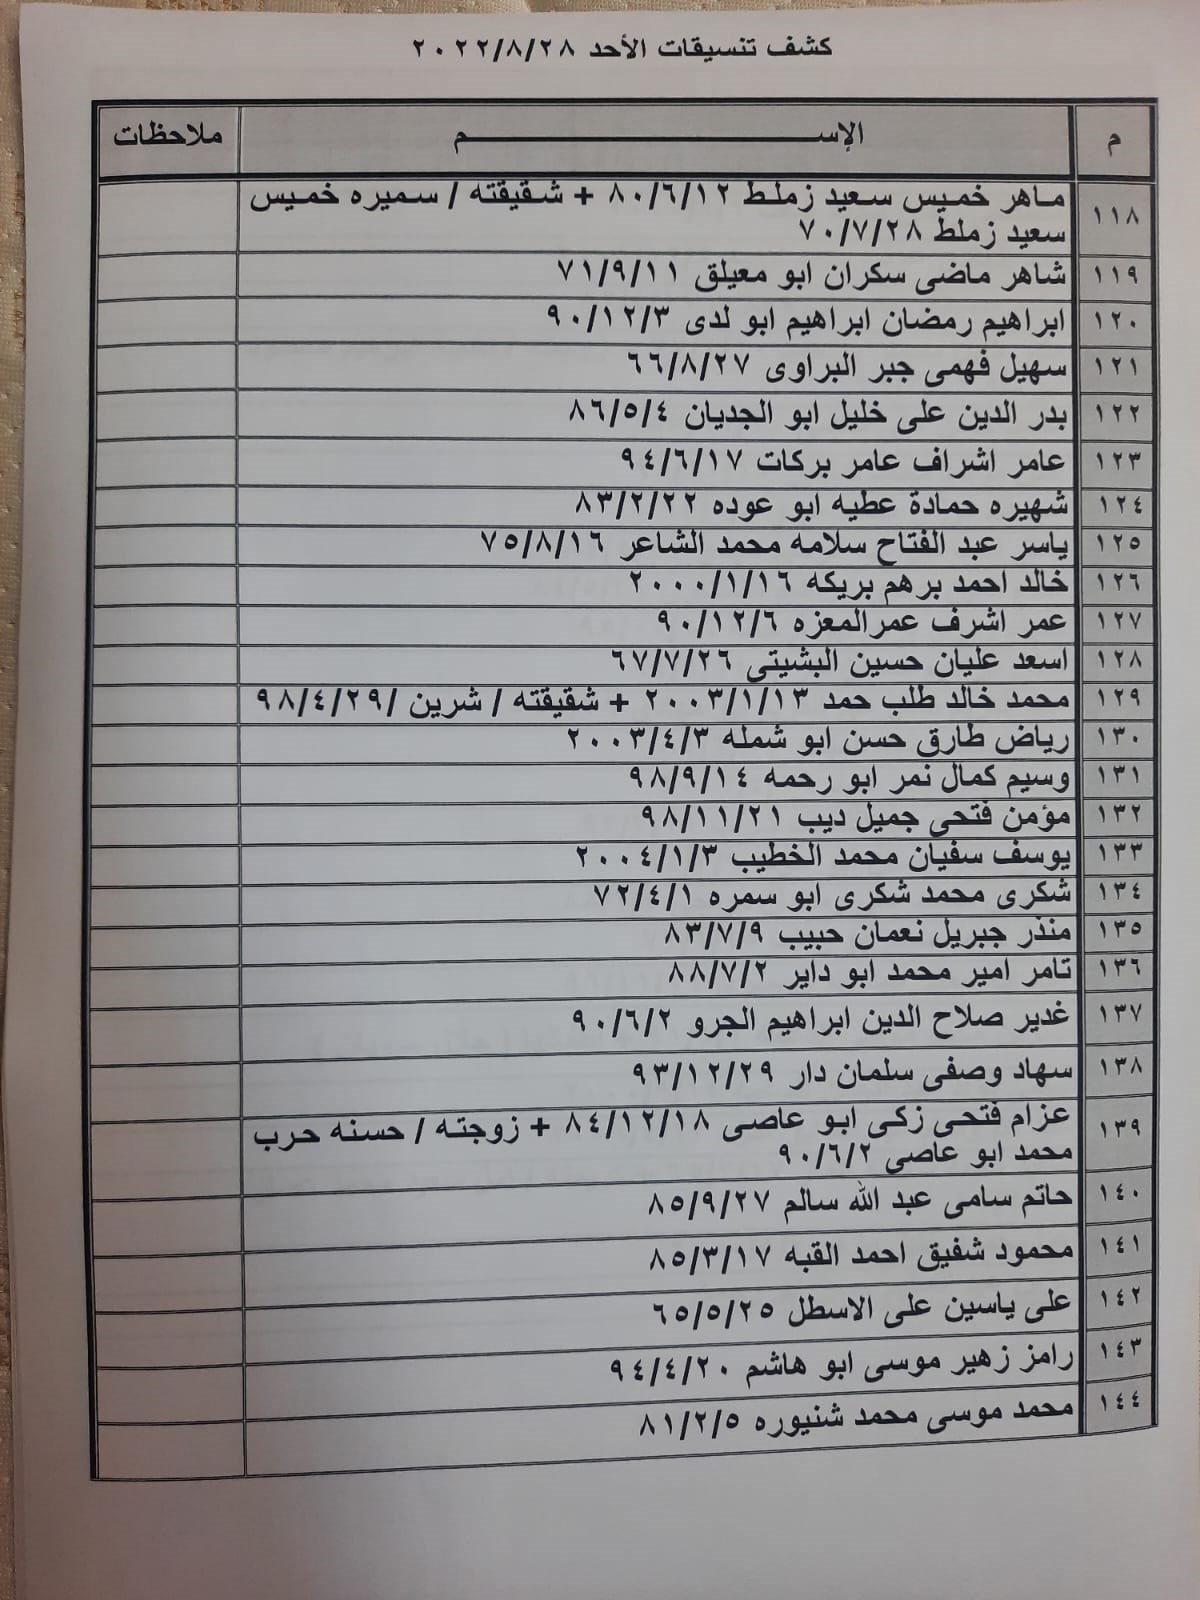 كشف تنسيقات الأحد ٢٠٢٢/٨/٢٨
م الإســـــــــــــــم ملاحظات
١١٨ ماهر خميس سعيد زملط ٨٠/٦/١٢ + شقيقته / سميره خميس
سعيد زملط ٧٠/٧/٢٨
١١٩ شاهر ماضى سكران ابو معيلق ٧١/٩/١١
١٢٠ ابراهيم رمضان ابراهيم ابو لدى ٩٠/١٢/٣
١٢١ سهيل فهمى جبر البراوى ٦٦/٨/٢٧
١٢٢ بدر الدين على خليل ابو الجديان ٨٦/٥/٤
١٢٣ عامر اشراف عامر بركات ٩٤/٦/١٧
١٢٤ شهيره حمادة عطيه ابو عوده ٨٣/٢/٢٢
١٢٥ ياسر عبد الفتاح سلامه محمد الشاعر ٧٥/٨/١٦
١٢٦ خالد احمد برهم بريكه ٢٠٠٠/١/١٦
١٢٧ عمر اشرف عمرالمعزه ٩٠/١٢/٦
١٢٨ اسعد عليان حسين البشيتى ٦٧/٧/٢٦
١٢٩ محمد خالد طلب حمد ٢٠٠٣/١/١٣ + شقيقته / شرين /٩٨/٤/٢٩
١٣٠ رياض طارق حسن ابو شمله ٢٠٠٣/٤/٣
١٣١ وسيم كمال نمر ابو رحمه ٩٨/٩/١٤
١٣٢ مؤمن فتحى جميل ديب ٩٨/١١/٢١
١٣٣ يوسف سفيان محمد الخطيب ٢٠٠٤/١/٣
١٣٤ شكرى محمد شكرى ابو سمره ٧٢/٤/١
١٣٥ منذر جبريل نعمان حبيب ٨٣/٧/٩
١٣٦ تامر امير محمد ابو داير ٨٨/٧/٢
١٣٧ غدير صلاح الدين ابراهيم الجرو ٩٠/٦/٢
١٣٨ سهاد وصفى سلمان دار ٩٣/١٢/٢٩
١٣٩ عزام فتحى زكى ابو عاصى ٨٤/١٢/١٨ + زوجته / حسنه حرب
محمد ابو عاصى ٩٠/٦/٢
١٤٠ حاتم سامى عبد الله سالم ٨٥/٩/٢٧
١٤١ محمود شفيق احمد القبه ٨٥/٣/١٧
١٤٢ على ياسين على الاسطل ٦٥/٥/٢٥
١٤٣ رامز زهير موسى ابو هاشم ٩٤/٤/٢٠
١٤٤ محمد موسى محمد شنيوره ٨١/٢/٥